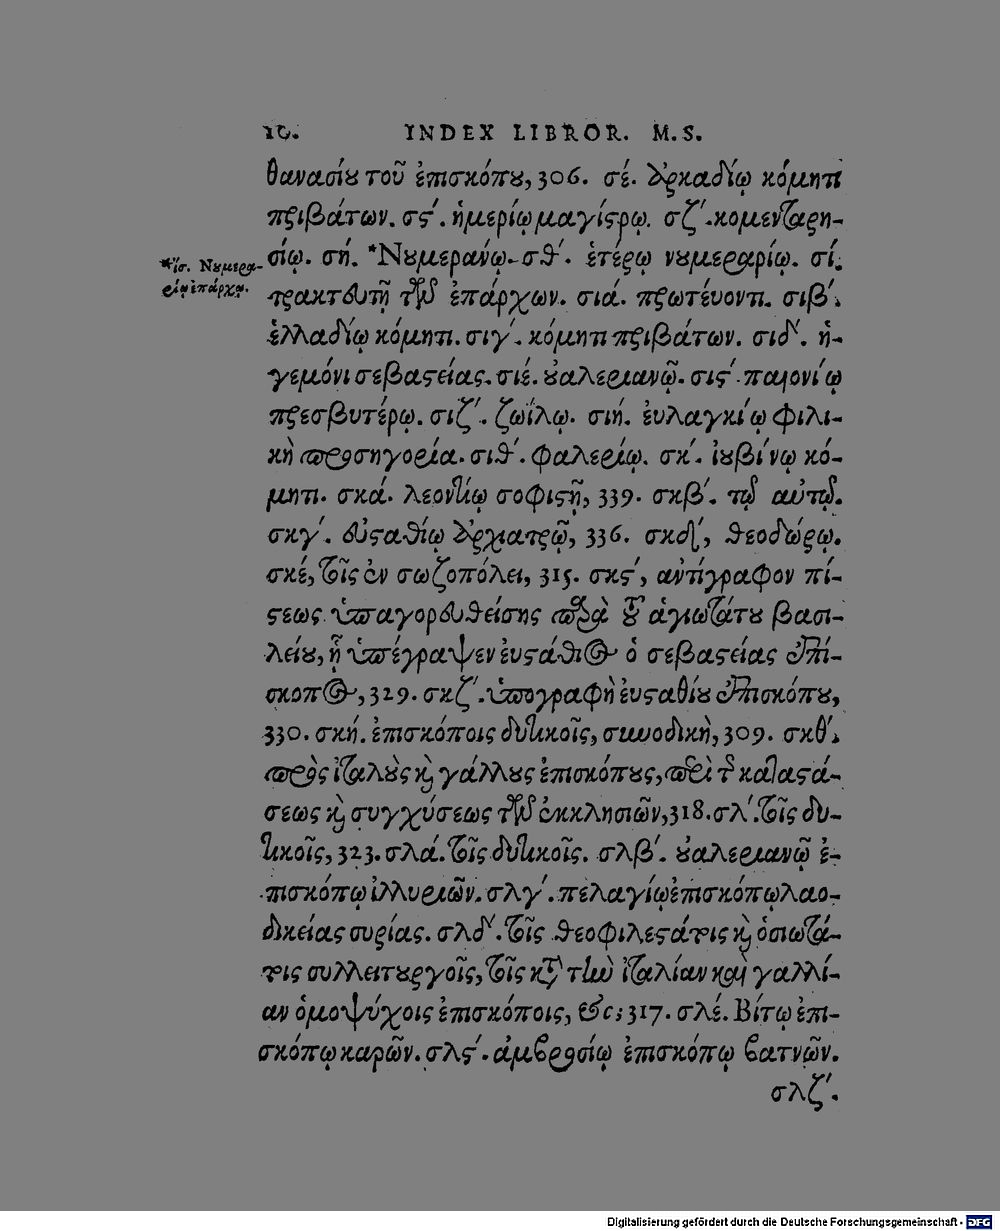 10. INDEX LIBROR. M.S.
θανασίου τοῦ ἐπισκόπου, 306. σέ. ἀρκαδίῳ κόμητι
πριβάτων. σϛ΄. ἡμερίῳ μαγίστρῳ. σζ΄. κομενταρη-
σίῳ. σή. *Νουμερανίῳ. σθ΄. ἑτέρῳ νουμεραρίῳ. σί.
*ἴσ. Νουμερα-
ρίῳ ἐπάρχῳ.
τρακτευτῇ τῶν ἐπάρχων. σιά. πρωτέυοντι. σιβ΄.
ἑλλαδίῳ κόμητι. σιγ΄. κόμητι πριβάτων. σιδ΄. ἡ-
γεμόνι σεβαστείας. σιέ. οὐαλεριανῷ. σιϛ΄. παιονίῳ
πρεσβυτέρῳ. σιζ΄. ζωΐλῳ. σιή. ἐυλαγκίῳ φιλι-
κὴ προσηγορία. σιθ΄. φαλερίῳ. σκ΄. ἰουβίνῳ κό-
μητι. σκά. λεοντίῳ σοφιστῇ, 339. σκβ΄. τῷ αὐτῷ.
σκγ΄. εὐσταθίῳ ἀρχιατρῷ, 336. σκδ΄, θεοδώρῳ.
σκέ, τοῖς ἐν σωζοπόλει, 315. σκϛ΄, αὐτίγραφον πί-
στεως ὑπαγορευθείσης παρὰ τοῦ ἁγιωτάτου βασι-
λείου, ᾗ ὑπέγραψεν ἐυστάθιος ὁ σεβαστείας ἐπί-
σκοπος, 329. σκζ΄. ὑπογραφὴ ἐυσταθίου ἐπισκόπου,
330. σκή. ἐπισκόποις δυτικοῖς, συνοδικὴ, 309. σκθ΄.
πρὸς ἰταλοὺς καὶ γάλλους ἐπισκόπους, περὶ τῆς καταστά-
σεως καὶ συγχύσεως τῶν ἐκκλησιῶν, 318. σλ΄. τοῖς δυ-
τικοῖς, 323. σλά. τοῖς δυτικοῖς. σλβ΄. οὐαλεριανῷ ἐ-
πισκόπῳ ἰλλυριῶν. σλγ΄. πελαγίῳ ἐπισκόπῳ λαο-
δικείας συρίας. σλδ΄. τοῖς θεοφιλεστάτοις καὶ ὁσιωτά-
τοις συλλειτουργοῖς, τοῖς κατὰ τὴν ἰταλίαν καὶ γαλλί-
αν ὁμοψύχοις ἐπισκόποις, &c; 317. σλέ. Βίτῳ ἐπι-
σκόπῳ καρῶν. σλϛ΄. ἀμβροσίῳ ἐπισκόπῳ βατνῶν.
σλζ΄.
Digitalisierung gefördert durch die Deutsche Forschungsgemeinschaft - DFG